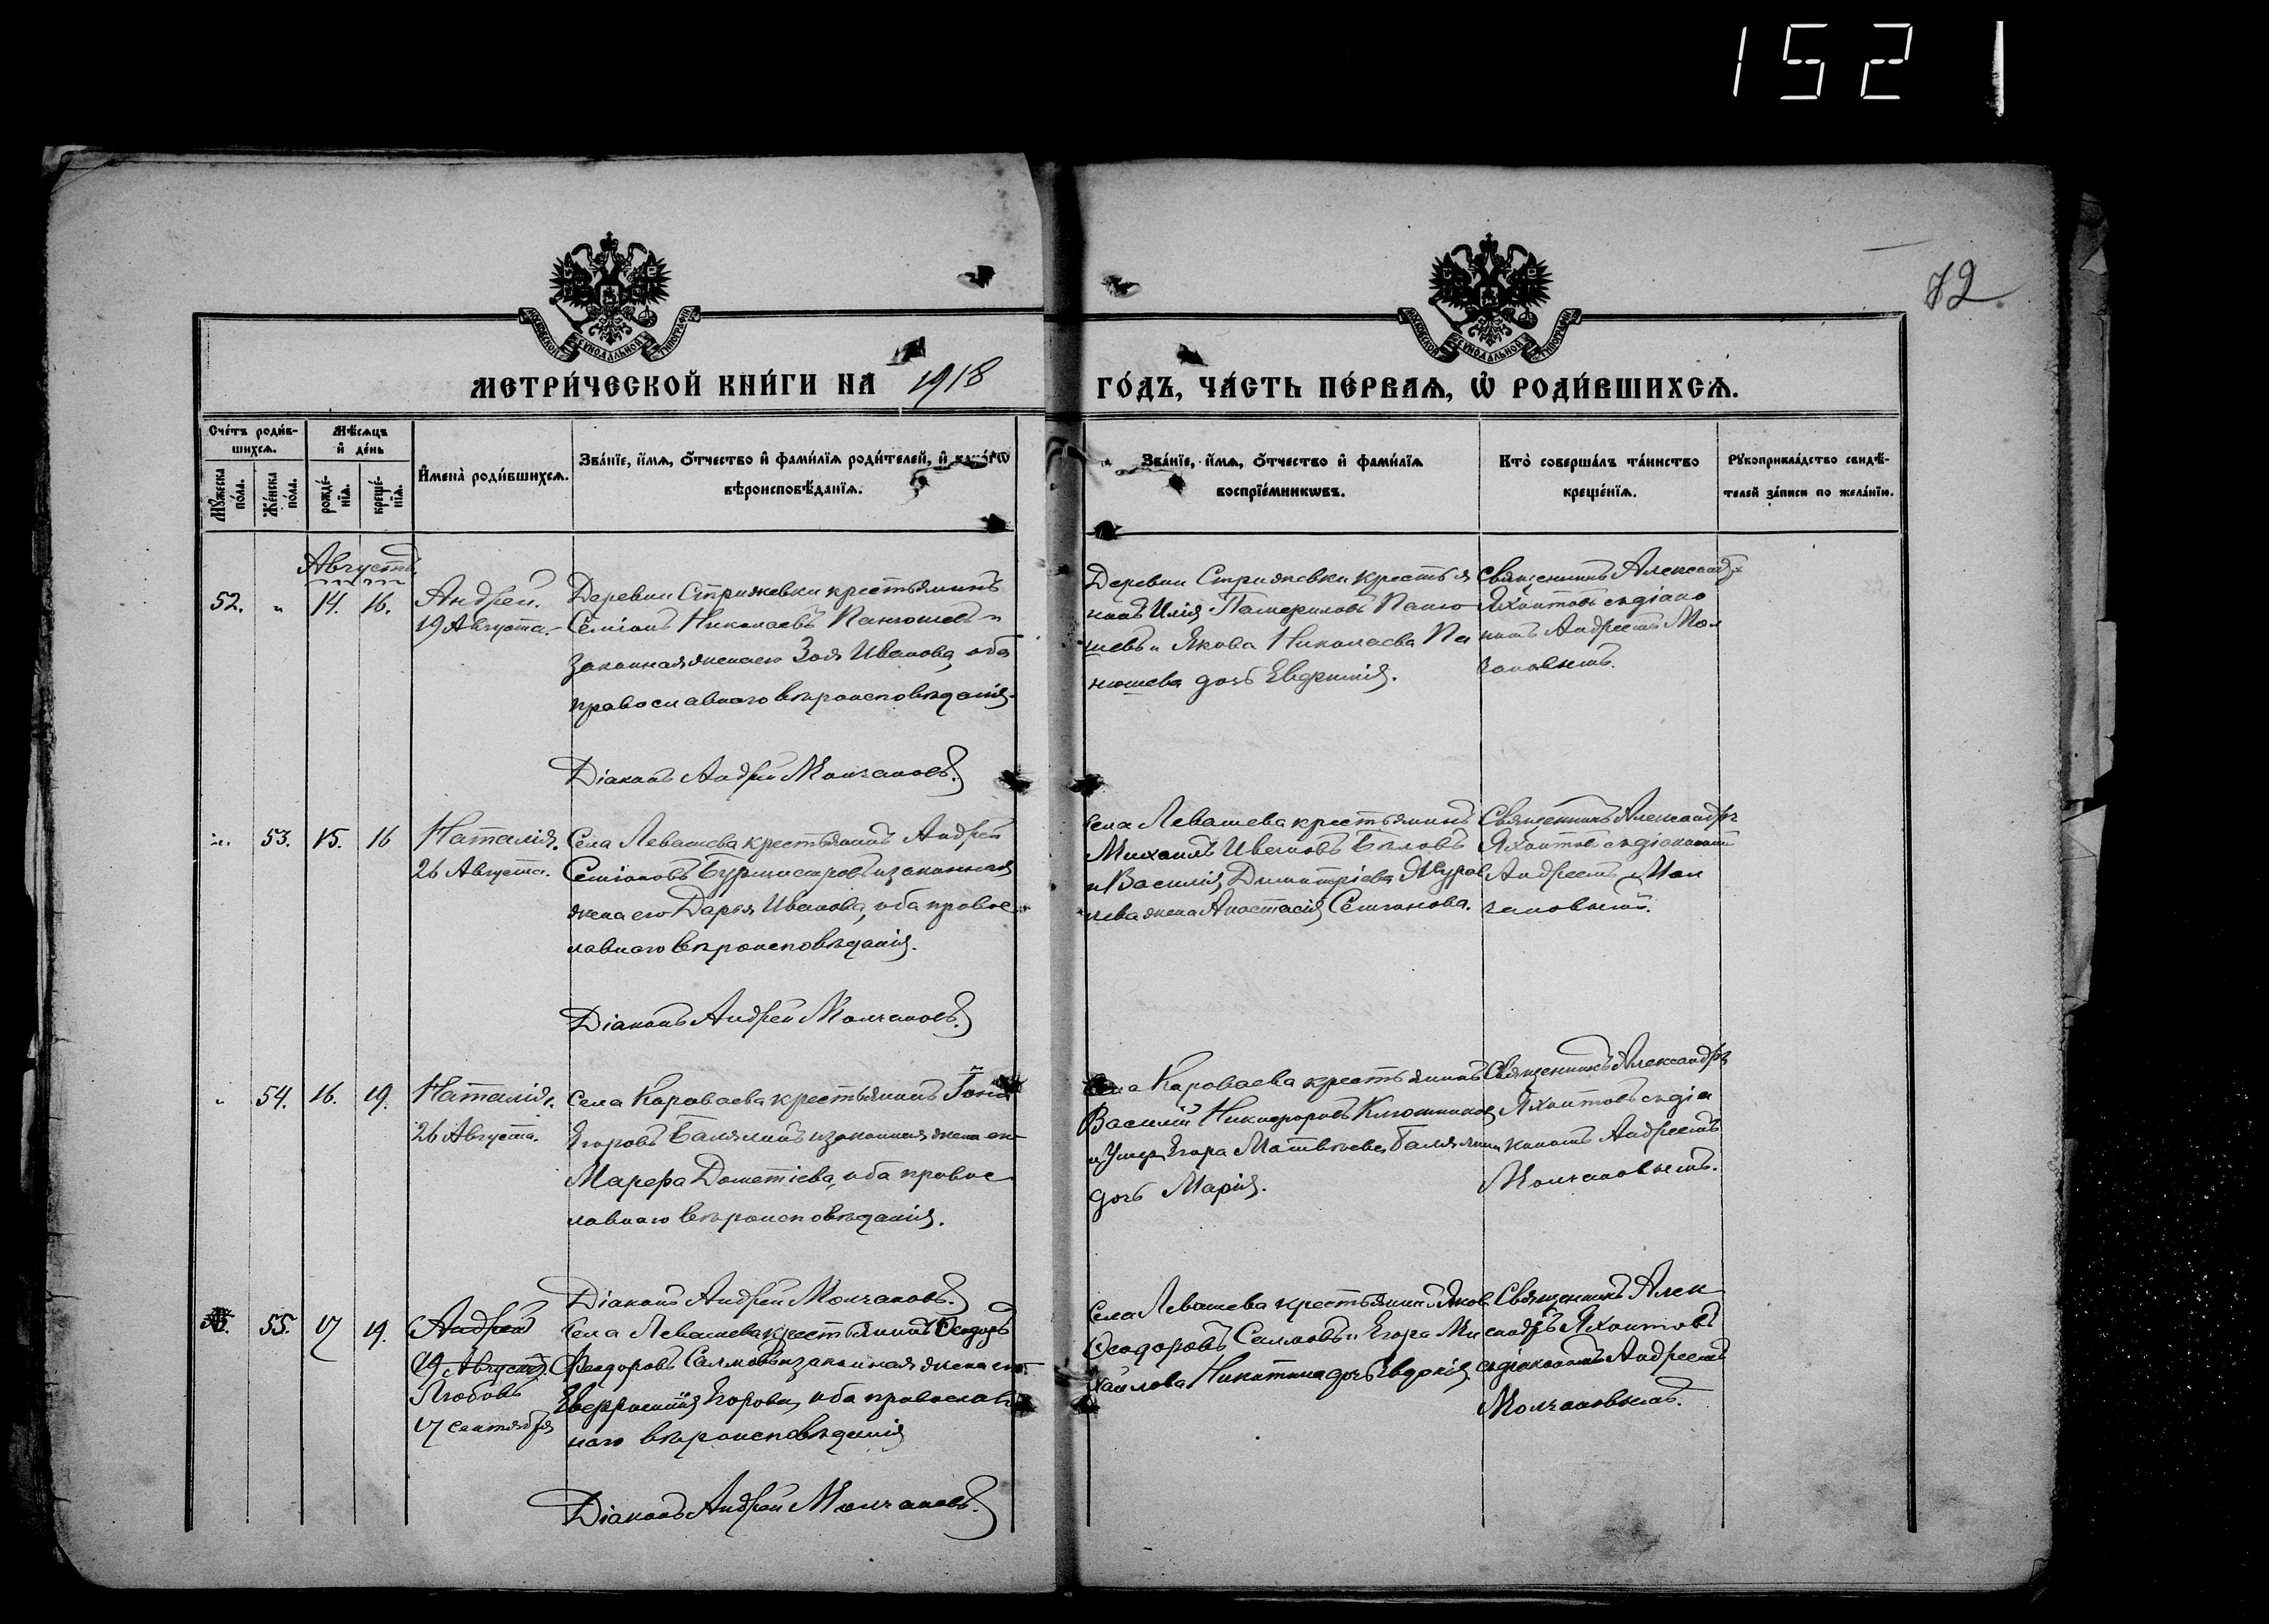 1521
72
МОСКОВСКОЙ СѴНОДАЛЬНОЙ ТИПОГРАФІИ
МОСКОВСКОЙ СѴНОДАЛЬНОЙ ТИПОГРАФІИ
МЕТРИ́ЧЕСКОЙ КНИ́ГИ НА 1918 ГО́ДЪ, ЧА́СТЬ ПЕ́РВАѦ, Ѡ҆ РОДИ́ВШИХСѦ.
Сче́тъ роди́в-
шихсѧ.
Мѣ́сѧцъ
и҆ де́нь
Мꙋ́жеска по́ла.
Же́нска по́ла.
рожде́-нїѧ.
креще́-нїѧ.
И҆мена̀ роди́вшихсѧ.
Зва́нїе, и҆́мѧ, ѻ҆́тчество и҆ фами́лїѧ роди́телей, и҆ како́гѡ
вѣроисповѣ́данїѧ.
Зва́нїе, и҆́мѧ, ѻ҆́тчество и҆ фами́лїѧ
воспрїе́мникѡвъ.
Кто̀ соверша́лъ та́инство
креще́нїѧ.
Рꙋкоприкла́дство свидѣ́-
телей за́писи по жела́нїю.
Августъ
52. " 14. 16.
Андрей.
19 Августа.
Деревни Стрижевки крестьянинъ
Семіонъ Николаевъ Панюшевъ и
законная жена его Зоя Иванова, оба
православнаго вѣроисповѣданія.
Діаконъ Андрей Молчановъ.
Деревни Стрижевки крестья
нинъ Илія Памфиловъ Паню
шевъ и Якова Николаева Па
нюшева дочь Евфимія.
Священникъ Александръ
Яхонтовъ съ діако
номъ Андреемъ Мол
чановымъ.
" 53. 15. 16
Наталія.
26 Августа.
Села Левашева крестьянинъ Андрей
Семіоновъ Бурмистровъ и законная
жена его Дарья Иванова, оба правос
лавнаго вѣроисповѣданія.
Діаконъ Андрей Молчановъ.
Села Левашева крестьянинъ
Михаилъ Ивановъ Бѣловъ
и Василія Димитріева Журав
лева жена Анастасія Семіонова.
Священникъ Александръ
Яхонтовъ съ діакономъ
Андреемъ Мол
чановымъ.
" 54. 16. 19.
Наталія.
26 Августа.
Села Короваева крестьянинъ
Егоровъ Балялинъ и законная жена его
Марефа Дометіева, оба правос
лавнаго вѣроисповѣданія.
Діаконъ Андрей Молчановъ.
Села Короваева крестьянинъ
Василій Никифоровъ Ключниковъ
и Умер. Егора Матвѣева Балялина
дочь Марія.
Священникъ Александръ
Яхонтовъ съ діа
кономъ Андреемъ
Молчановымъ.
55. 17 19.
Андрей
19 Августа.
Любовь
17 сентября
Села Левашева крестьянинъ Ѳеодоръ
Ѳеодоровъ Салмовъ и законная жена его
Евфросинія Егорова, оба православ
наго вѣроисповѣданія
Діаконъ Андрей Молчановъ.
Села Левашева крестьянинъ Яковъ
Ѳеодоровъ Салмовъ и Егора Ми
хайлова Никитина дочь Евдокія.
Священникъ Алек
сандръ Яхонтовъ
съ діакономъ Андреемъ
Молчановымъ.